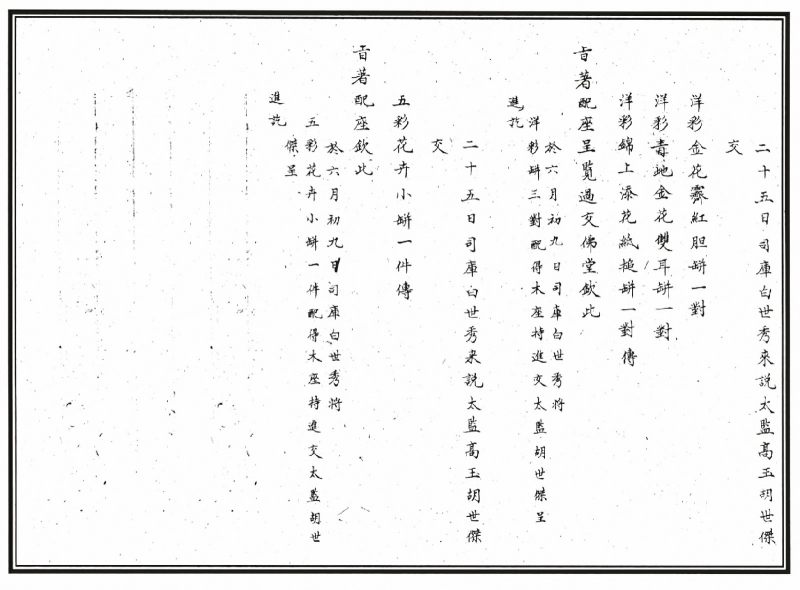 二十五日司庫白世秀來說太監高玉胡世傑
交
洋彩金花霽紅胆缾一對
洋彩青地金花雙耳缾一對
洋彩錦上添花紙搥缾一對傳
旨著配座呈覽過交佛堂欽此
於六月初九日司庫白世秀將
洋彩缾三對配得木座持進交太監胡世傑呈
進訖
二十五日司庫白世秀來說太監高玉胡世傑
交
五彩花卉小缾一件傳
旨著配座欽此
於六月初九日司庫白世秀將
五彩花卉小缾一件配得木座持進交太監胡世
傑呈
進訖